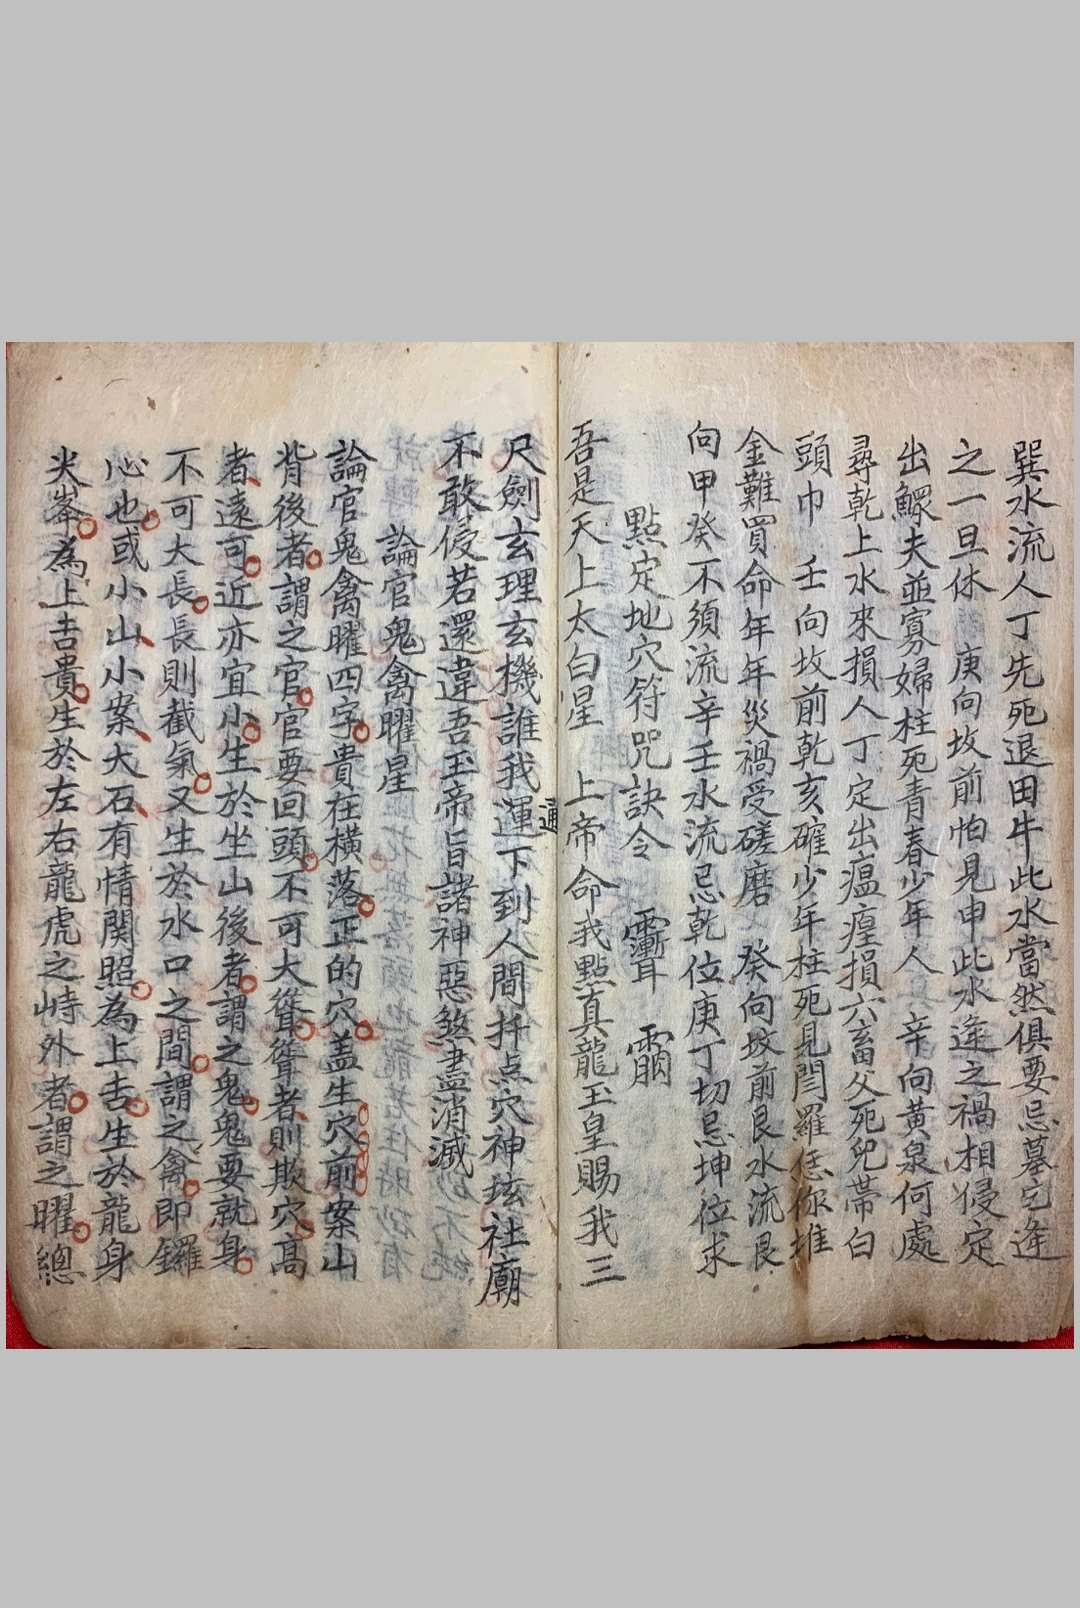 巽水流人丁先死退田牛此水當然俱要忌墓宅逢
之一旦休 庚向坟前怕見申此水逢之禍相侵定
出鰥夫並寡婦柱死青春少年人 辛向黃泉何處
尋乾上水來損人丁定出瘟㾮損六畜父死兒帶白
頭巾 壬向坟前乾亥確少年柱死見閆羅恁你堆
金難買命年年災禍受磋磨 癸向坟前艮水流艮
向甲癸不須流辛壬水流忌乾位庚丁切忌坤位求
點定地穴符咒訣令
吾是天上太白星 上帝命我點真龍玉皇賜我三
尺劍玄理玄機誰我運通下到人間扦点穴神坛社廟
不敢侵若還違吾玉帝旨諸神惡煞盡消滅
論官鬼禽曜星
論官鬼禽曜四字貴在橫落正的穴盖生穴前案山
背後者謂之官官要回頭不可大聳聳者則欺穴高
者遠可近亦宜小生於坐山後者謂之鬼鬼要就身
不可大長長則截氣又生於水口之間謂之禽即鑼
心也或小山小案大石有情関照為上吉生於龍身
尖峯為上吉貴生於左右龍虎之峙外者謂之曜總